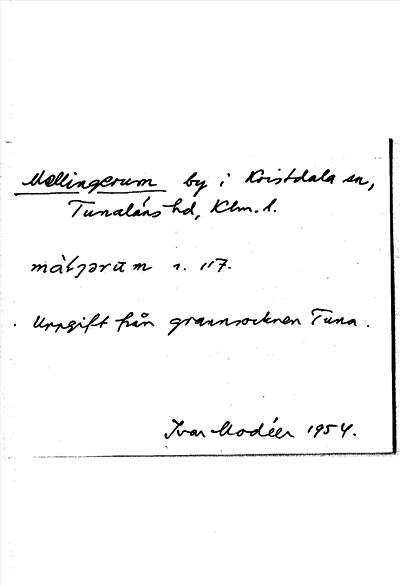 Mållingerum by i Kristdala sn,
Tunaläns hd, Klm. l.
s. 117.
Uppgift från grannsocknen Tuna.
Ivar Modéer 1954.